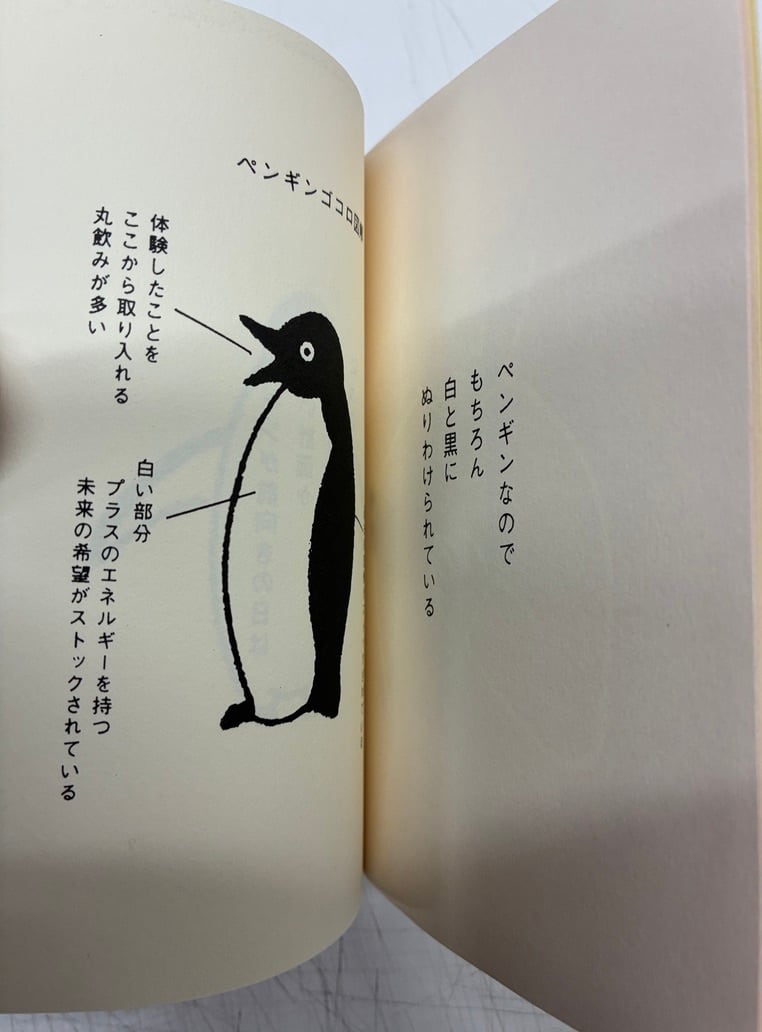 ペンギンなので
もちろん
白と黒に
ぬりわけられている
ペンギンゴコロ図解
体験したことを
ここから取り入れる
丸飲みが多い
白い部分
プラスのエネルギーを持つ
未来の希望がストックされている